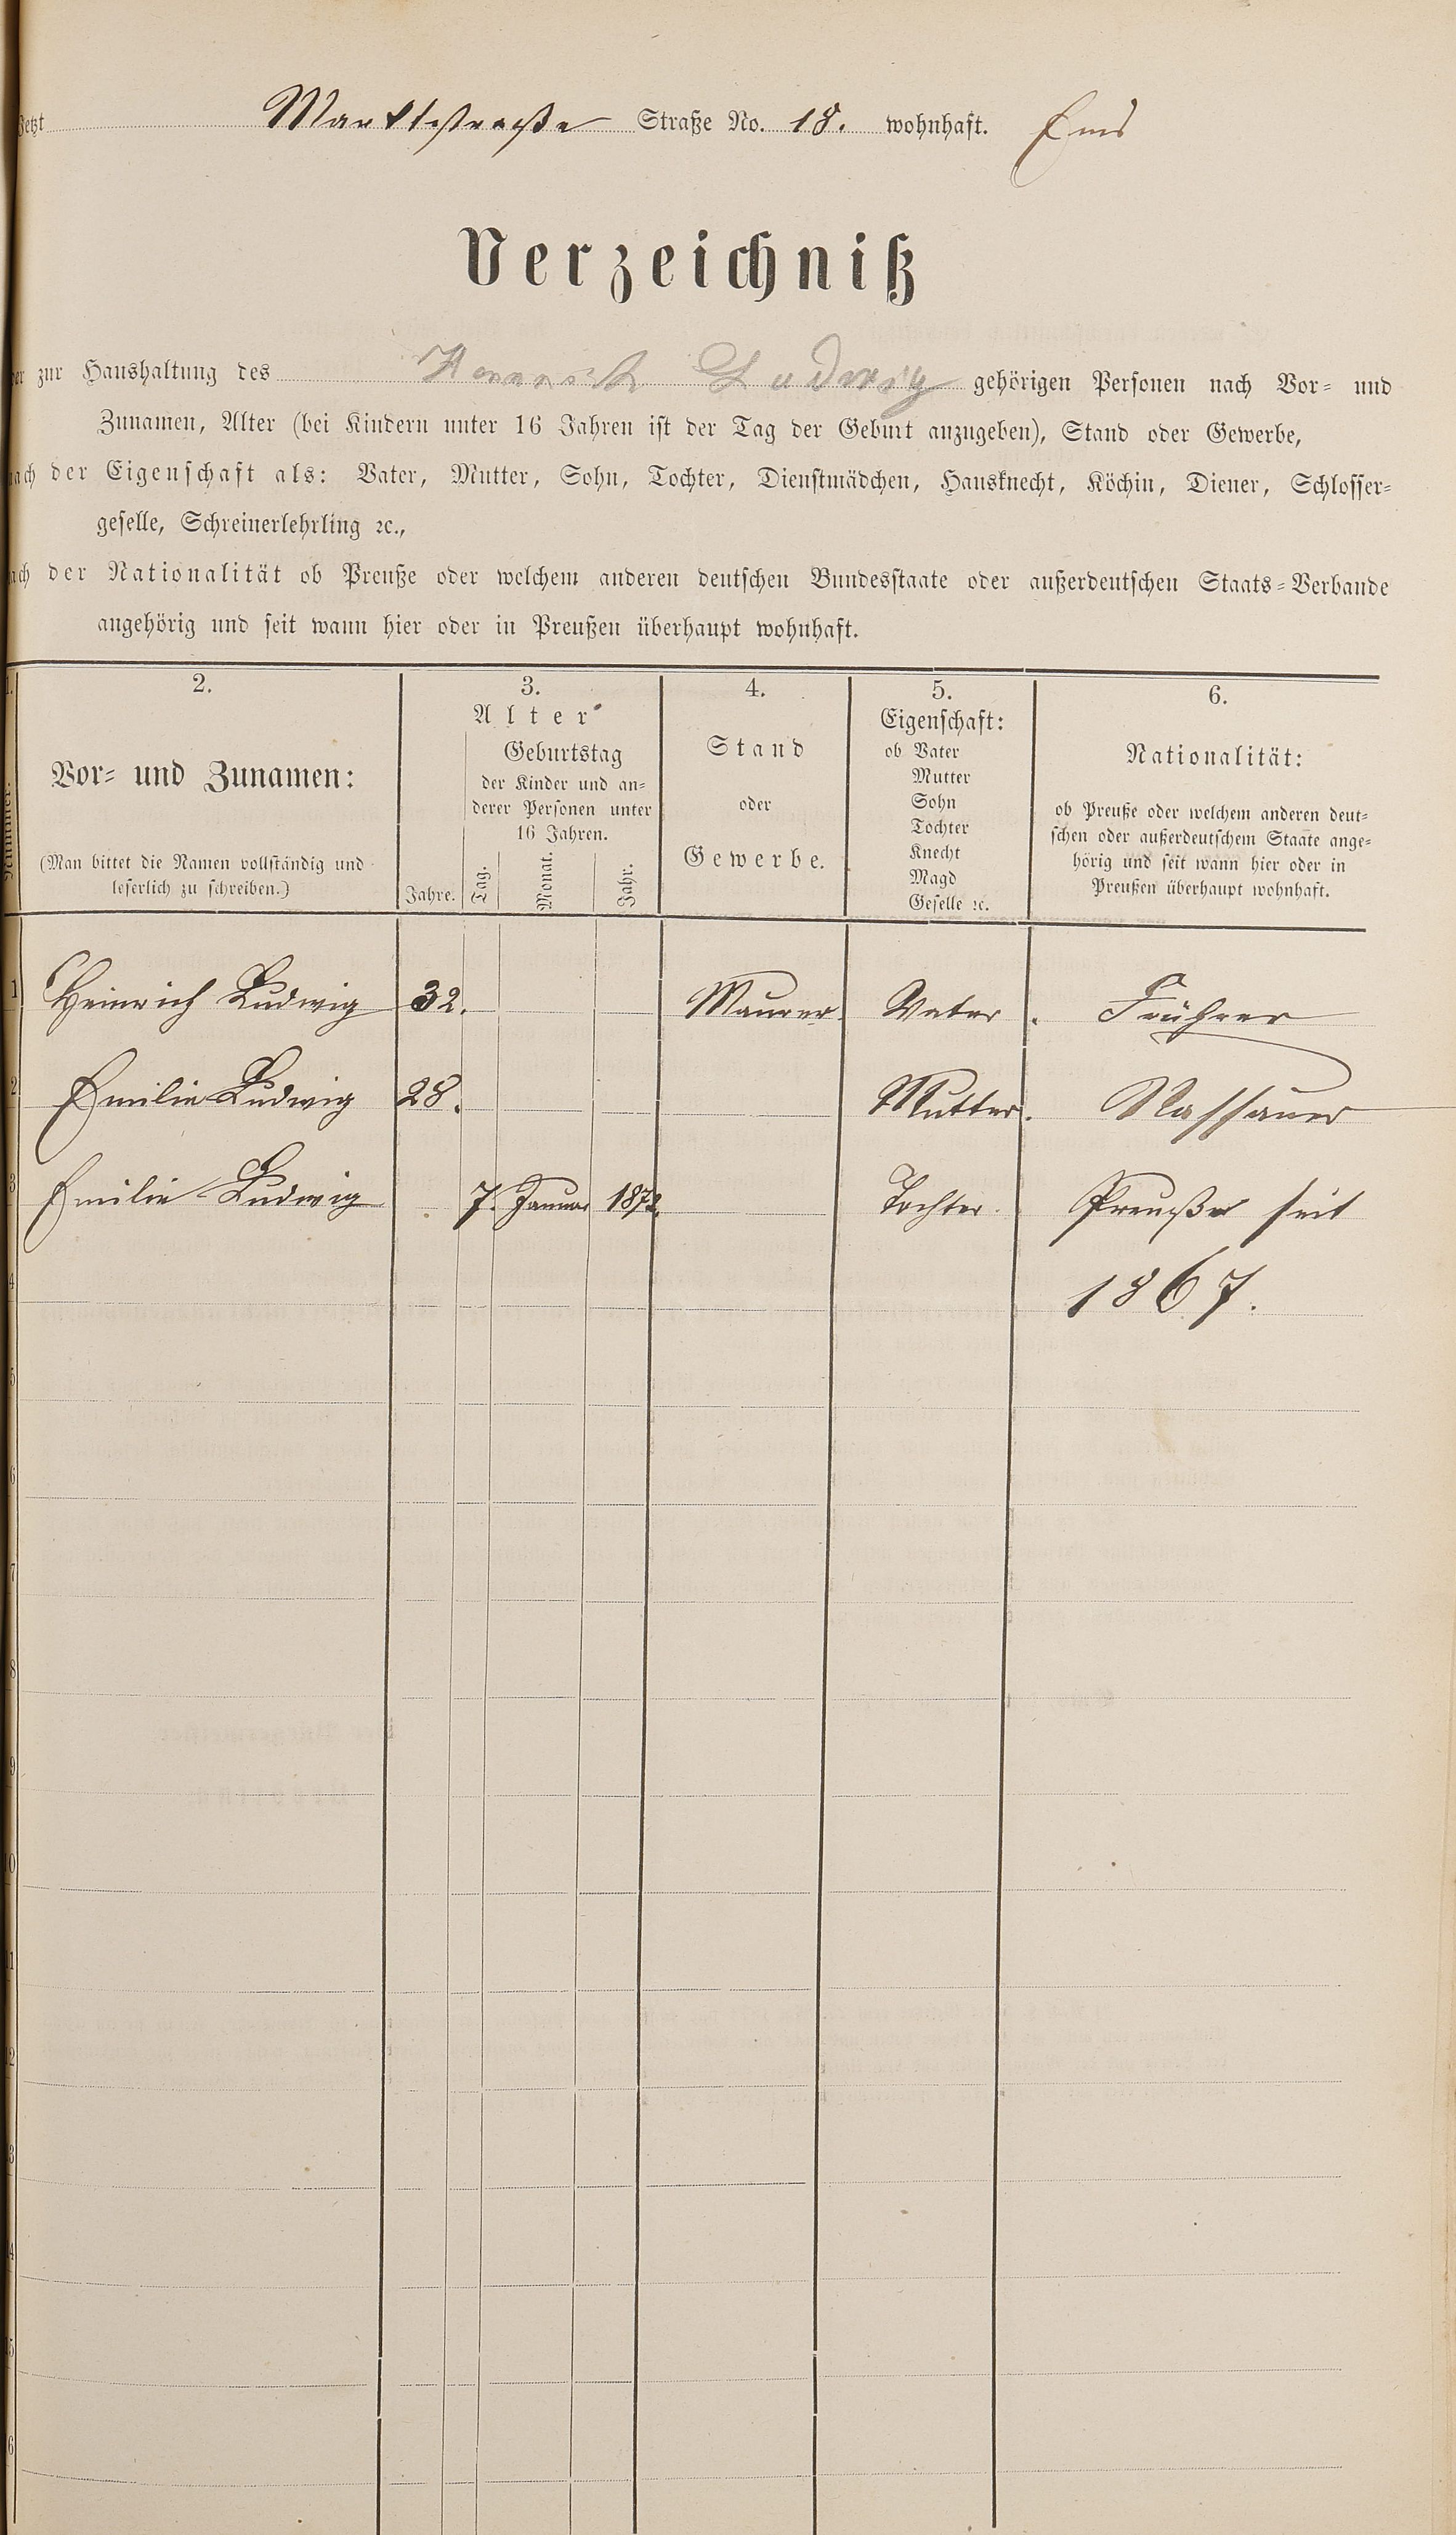 Jetzt Marktstraße Straße No. 18. wohnhaft. Ems
Verzeichniß
der zur Haushaltung des Heinrich Ludwig gehörigen Personen nach Vor- und
Zunamen, Alter (bei Kindern unter 16 Jahren ist der Tag der Geburt anzugeben), Stand oder Gewerbe,
nach der Eigenschaft als: Vater, Mutter, Sohn, Tochter, Dienstmädchen, Hausknecht, Köchin, Diener, Schlosser-
geselle, Schreinerlehrling ꝛc.,
nach der Nationalität ob Preuße oder welchem anderen deutschen Bundesstaate oder außerdeutschen Staats-Verbande
angehörig und seit wann hier oder in Preußen überhaupt wohnhaft.
1.
Nummer.
2.
Vor- und Zunamen:
(Man bittet die Namen vollständig und
leserlich zu schreiben.)
3.
Alter
Jahre.
Geburtstag
der Kinder und an-
derer Personen unter
16 Jahren.
Tag.
Monat.
Jahr.
4.
Stand
oder
Gewerbe.
5.
Eigenschaft:
ob Vater
Mutter
Sohn
Tochter
Knecht
Magd
Geselle ꝛc.
6.
Nationalität:
ob Preuße oder welchem anderen deut-
schen oder außerdeutschem Staate ange-
hörig und seit wann hier oder in
Preußen überhaupt wohnhaft.
1 Heinrich Ludwig 32. Maurer. Vater. Früherer
2 Emilie Ludwig 28. Mutter. Nassauer
3 Emilie Ludwig 7. Januar 1872. Tochter. Preuße seit
4 1867.
5
6
7
8
9
10
11
12
13
14
15
16